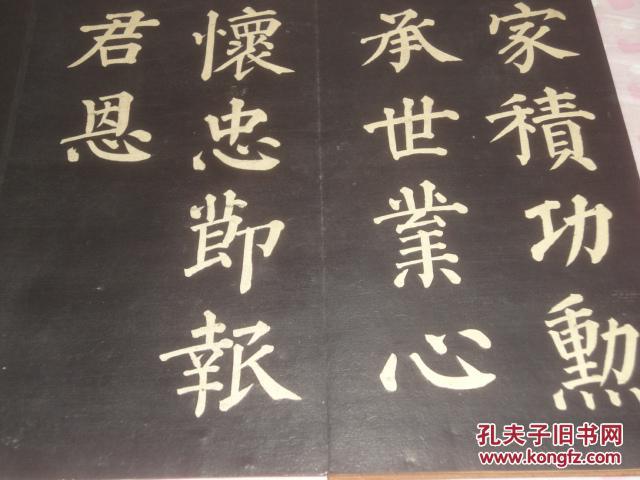 家積功勲
承世業心
懷忠節報
君恩
孔夫子旧书网
www.kongfz.com